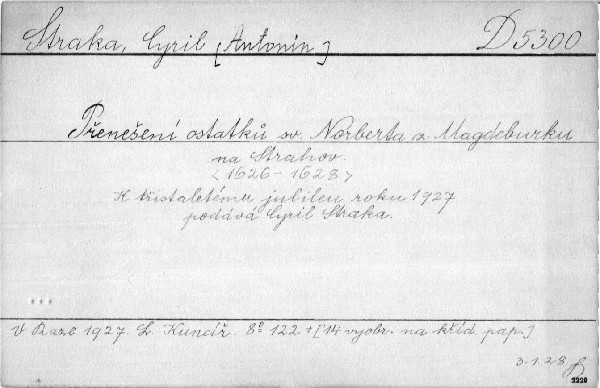 Straka, Cyril [Antonín] D 5300
Přenešení ostatků sv. Norberta z Magdeburku
na Strahov.
<1626-1628>
K třistaletému jubileu roku 1927
podává Cyril Straka.
V Praze 1927. L. Kuncíř. 8° 122 + [14 vyobr. na křid pap.]
3.1.28
2220